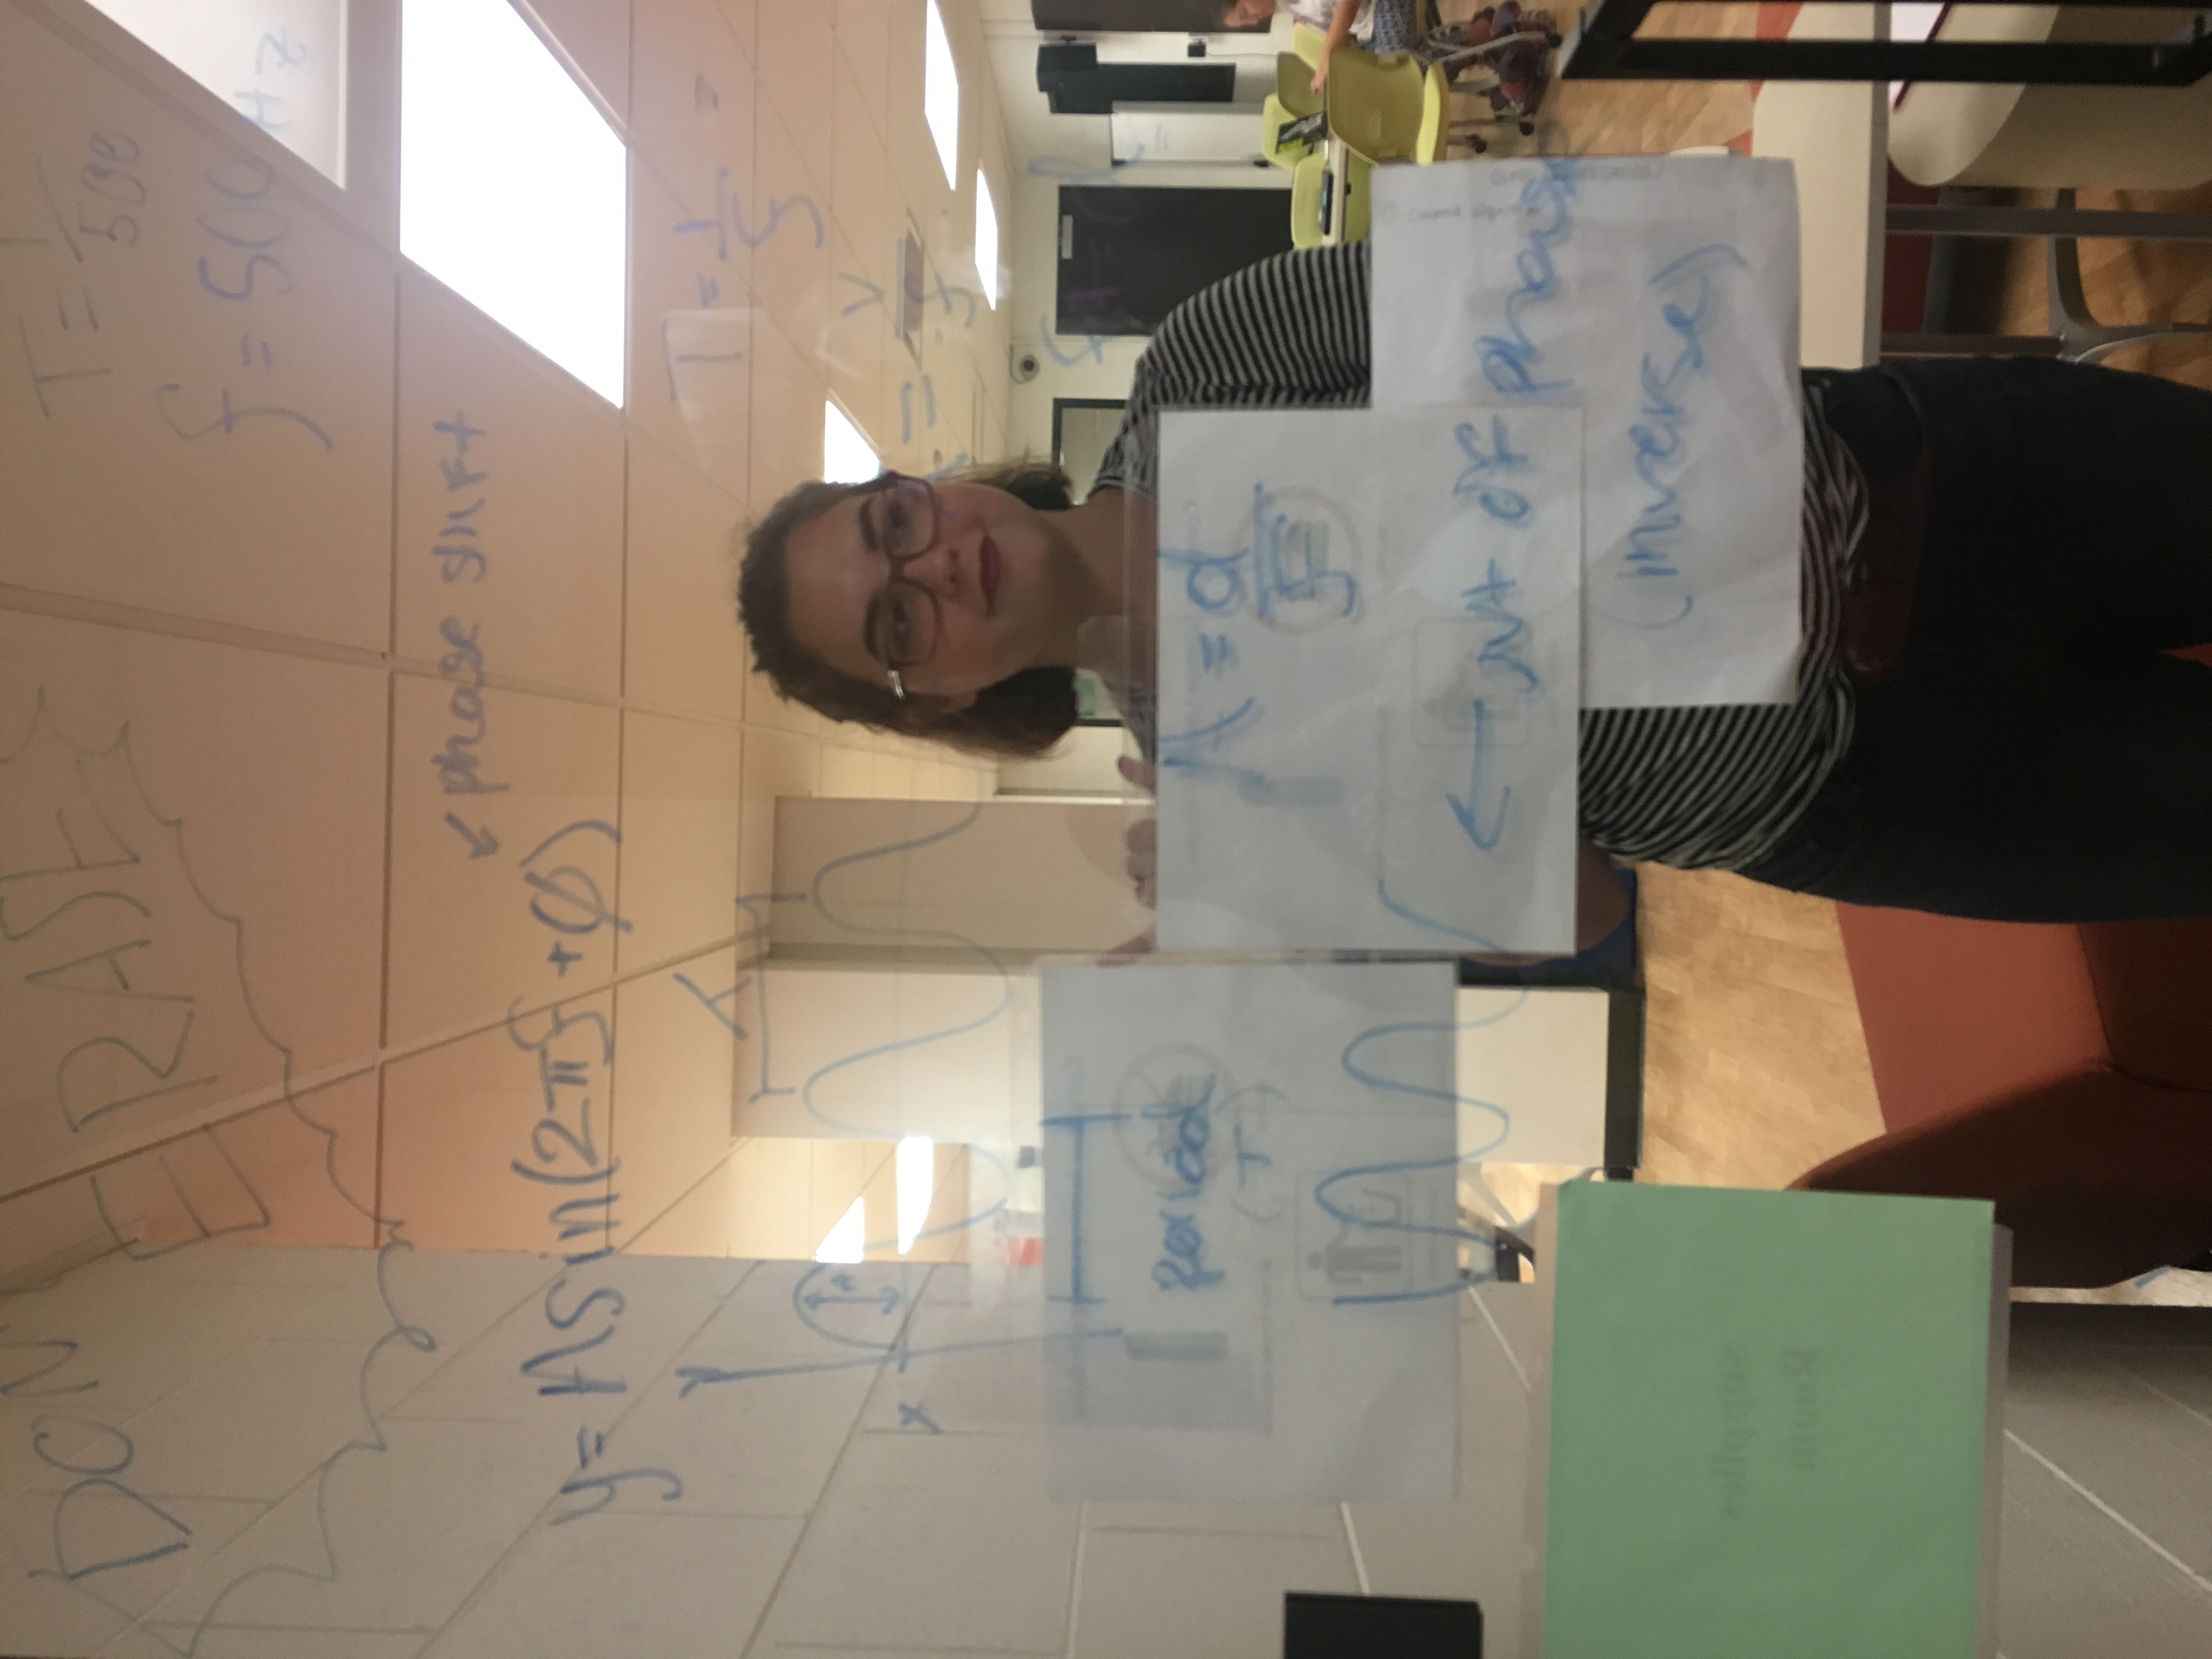 DON'
ERASE
T = 1/500
f = 500 Hz
↙ phase shift
y = A sin(2πf + φ)
y
T = 1/f
A
x
= v/f
period
(T)
A = d/f
← out of phase
(inverse)
Supplies
Room